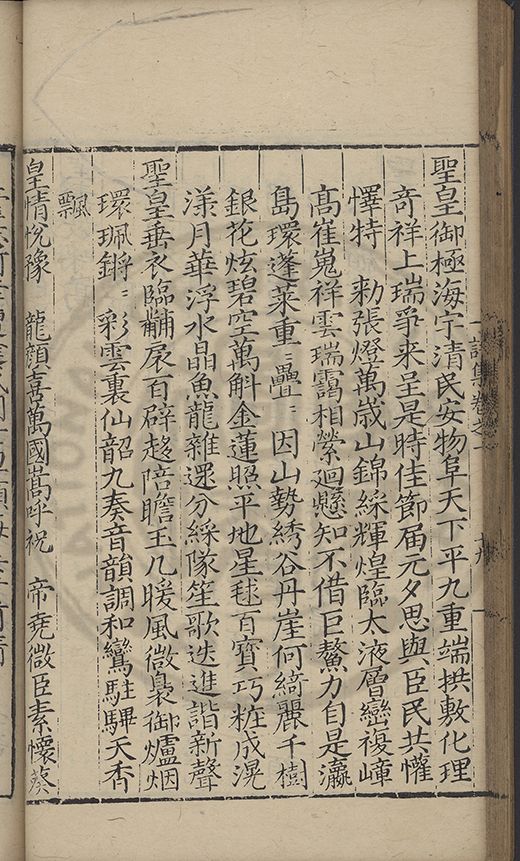 聖皇御極海宇清民安物阜天下平九重端拱敷化理
奇祥上瑞爭来呈是時佳節届元夕思與臣民共懽
懌特 勑張燈萬歲山錦綵輝煌臨太液層巒複嶂
高崔嵬祥雲瑞靄相縈迴懸知不借巨鰲力自是瀛
島環蓬莱重〻疊〻因山勢綉谷丹崖何綺麗千樹
銀花炫碧空萬斛金蓮照平地星毬百寳巧粧成滉
漾月華浮水晶魚龍雜遝分綵隊笙歌迭進諧新聲
聖皇垂衣臨黼扆百辟趍陪瞻玉几暖風微裊御爐烟
環珮鏘〻彩雲裏仙韶九奏音韻調和鸞駐驆天香
飄
皇情恱豫 龍顏喜萬國嵩呼祝 帝堯微臣素懷葵
詩集卷之一